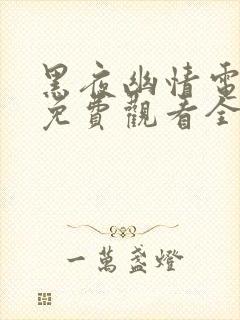 黑夜幽情電
免費觀看全
一萬盞燈